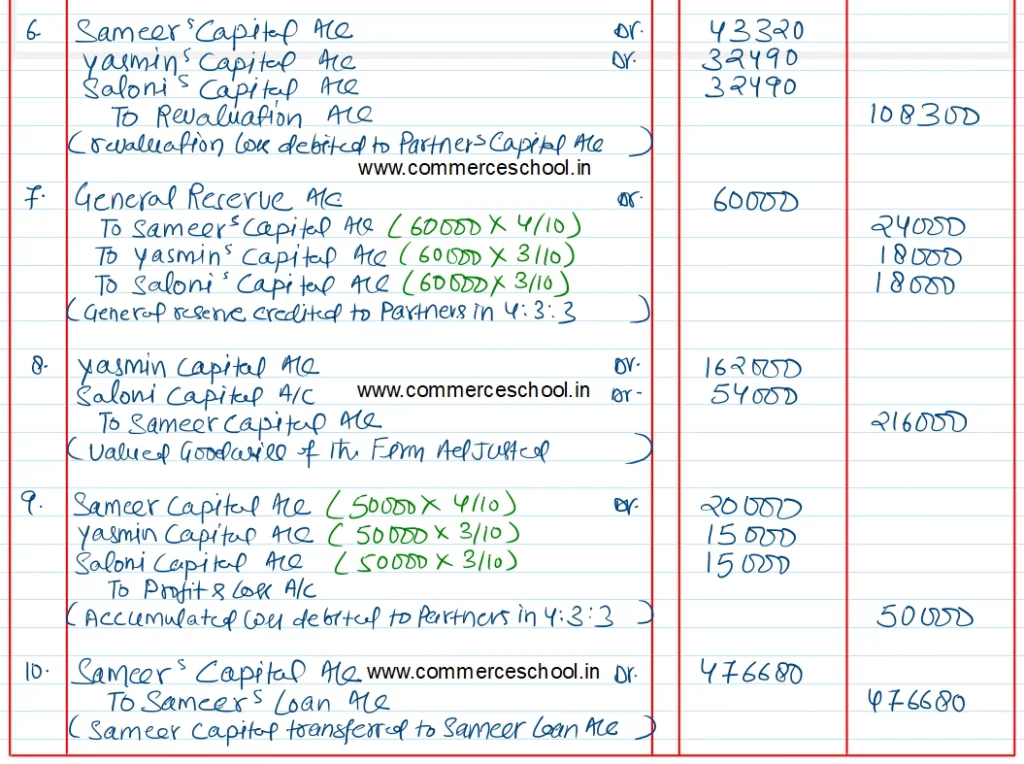 6. Sameer's Capital A/c Dr. 43320
Yasmin's Capital A/c Dr. 32490
Saloni's Capital A/c 32490
To Revaluation A/c 108300
(revaluation loss debited to Partners Capital A/c)
www.commerceschool.in
7. General Reserve A/c Dr. 60000
To Sameer's Capital A/c (60000 X 4/10) 24000
To Yasmin's Capital A/c (60000 X 3/10) 18000
To Saloni's Capital A/c (60000 X 3/10) 18000
(General reserve credited to Partners in 4:3:3)
8. Yasmin Capital A/c Dr. 162000
Saloni Capital A/C www.commerceschool.in Dr- 54000
To Sameer Capital A/c 216000
(Valued Goodwill of the Firm Adjusted)
9. Sameer Capital A/c (50000 X 4/10) Dr. 20000
Yasmin Capital A/c (50000 X 3/10) 15000
Saloni Capital A/c (50000 X 3/10) 15000
To Profit & Loss A/C
(Accumulated loss debited to Partners in 4:3:3) 50000
10. Sameer's Capital A/c www.commerceschool.in Dr. 476680
To Sameer's Loan A/c 476680
(Sameer Capital transferred to Sameer Loan A/c)